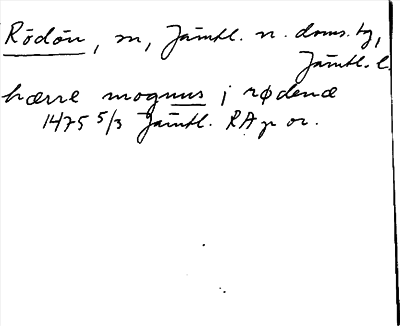 Rödön, sn, Jämtl. n. doms. tg,
Jämtl. l.
hærre mognus i rødenæ
1475 5/3 Jämtl. RAp or.